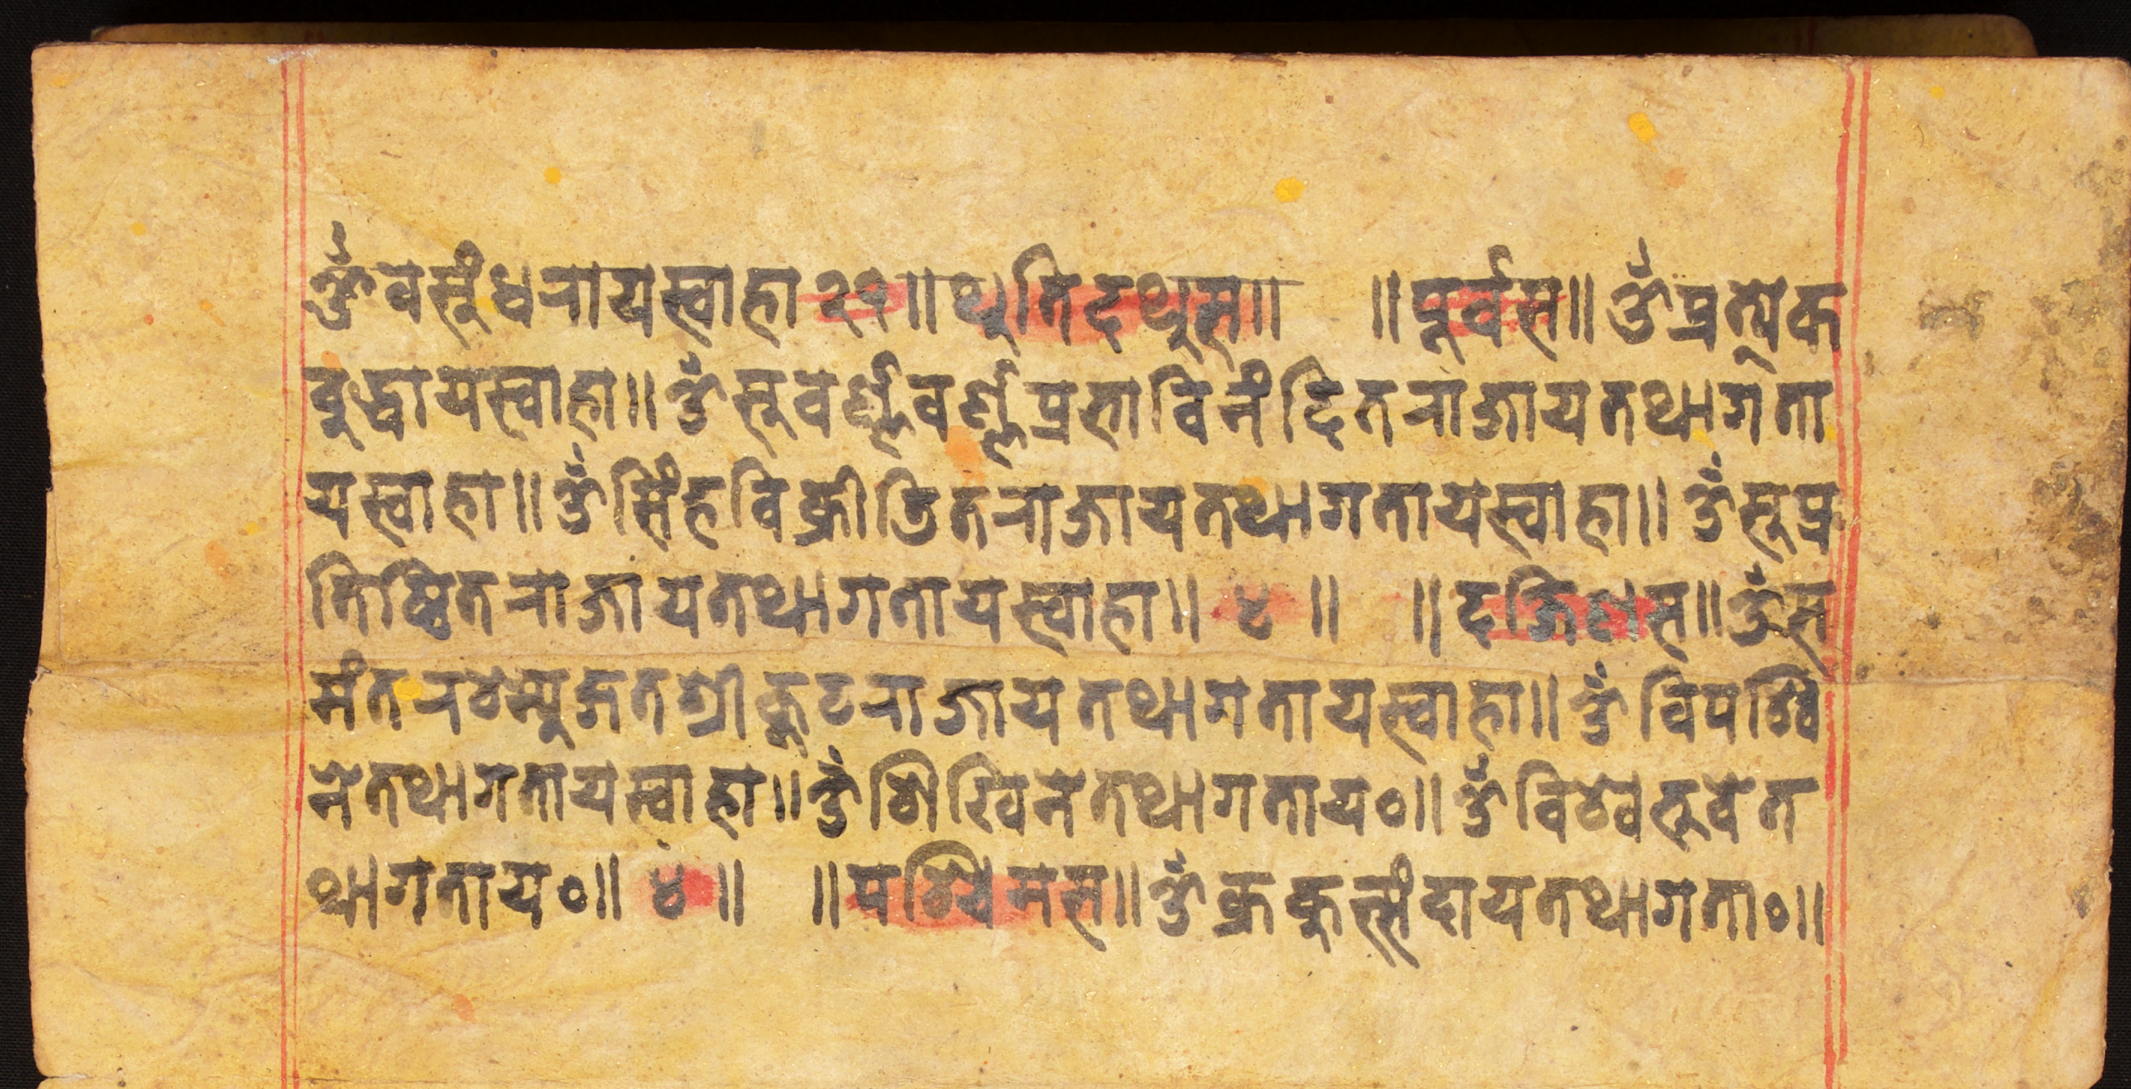 ॐ वसुंधरायस्वाहा २१॥ थुतिदथुस॥ ॥पूर्वस॥ ॐ प्रत्येक
बुद्धायस्वाहा॥ ॐ सुवर्ण्णवर्ण्णप्रभाविनंदितराजायतथागता
यस्वाहा॥ ॐ सिंहविक्रीतितराजायतथागतायस्वाहा॥ ॐ सुप्र
तिष्ठितराजायतथागतायस्वाहा॥ ४ ॥ ॥दक्षिणस॥ ॐ स
मंतरश्म्युद्गतश्रीकूटराजायतथागतायस्वाहा॥ ॐ विपश्वि
नेतथागतायस्वाहा॥ ॐ शिखिनेतथागताय०॥ ॐ विश्वभुवेत
थागताय०॥ ४ ॥ ॥पश्चिमस॥ ॐ क्रकुत्संदायतथागता०॥